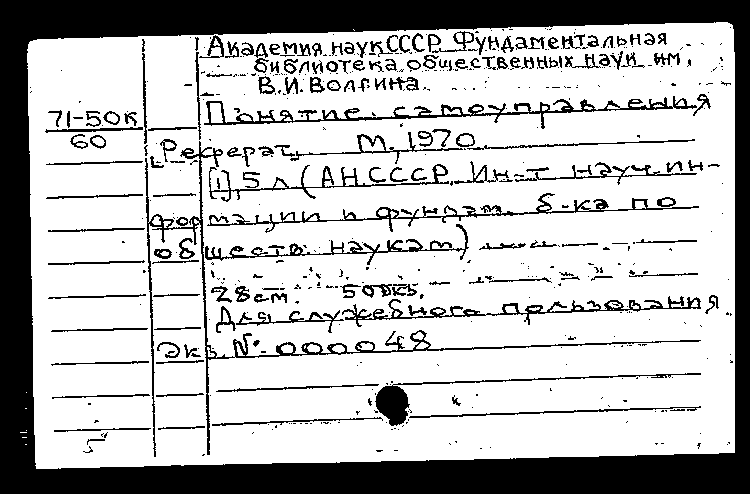 Академия наук СССР. Фундаментальная
библиотека общественных наук им.
В.И. Волгина.
71-50к
60
Понятие самоуправления
[Реферат]. М., 1970.
[1], 5 л (АН СССР. Ин-т науч. ин-
формации и фундам. б-ка по
обществ. наукам)
28 см. 50 экз.
Для служебного пользования
Экз. № 000048
5